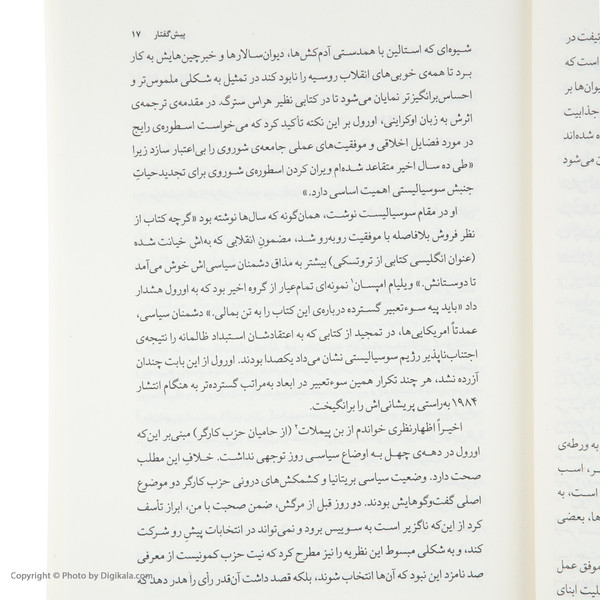 پیش‌گفتار ۱۷
شیوه‌ای که استالین با همدستی آدم‌کش‌ها، دیوان‌سالارها و خبرچین‌هایش به کار
برد تا همه‌ی خوبی‌های انقلاب روسیه را نابود کند در تمثیل به شکلی ملموس‌تر و
احساس‌برانگیزتر نمایان می‌شود تا در کتابی نظیر هراس سترگ. در مقدمه‌ی ترجمه‌ی
اثرش به زبان اوکراینی، اورول بر این نکته تأکید کرد که می‌خواست اسطوره‌ی رایج
در مورد فضایل اخلاقی و موفقیت‌های عملی جامعه‌ی شوروی را بی‌اعتبار سازد زیرا
«طی ده سال اخیر متقاعد شده‌ام ویران کردن اسطوره‌ی شوروی برای تجدیدحیاتِ
جنبش سوسیالیستی اهمیت اساسی دارد.»
او در مقام سوسیالیست نوشت، همان‌گونه که سال‌ها نوشته بود «گرچه کتاب از
نظر فروش بلافاصله با موفقیت روبه‌رو شد، مضمونِ انقلابی که به‌اش خیانت شده
(عنوان انگلیسی کتابی از تروتسکی) بیشتر به مذاق دشمنان سیاسی‌اش خوش می‌آمد
تا دوستانش.» ویلیام امپسان۱ نمونه‌ای تمام‌عیار از گروه اخیر بود که به اورول هشدار
داد «باید پیه سوءتعبیر گسترده درباره‌ی این کتاب را به تن بمالی.» دشمنان سیاسی،
عمدتاً امریکایی‌ها، در تمجید از کتابی که به اعتقادشان استبداد ظالمانه را نتیجه‌ی
اجتناب‌ناپذیر رژیم سوسیالیستی نشان می‌داد یکصدا بودند. اورول از این بابت چندان
آزرده نشد، هر چند تکرار همین سوءتعبیر در ابعاد به‌مراتب گسترده‌تر به هنگام انتشار
۱۹۸۴ به‌راستی پریشانی‌اش را برانگیخت.
اخیراً اظهارنظری خواندم از بن پیملات۲ (از حامیان حزب کارگر) مبنی‌بر این‌که
اورول در دهه‌ی چهل به اوضاع سیاسی روز توجهی نداشت. خلافِ این مطلب
صحت دارد. وضعیت سیاسی بریتانیا و کشمکش‌های درونی حزب کارگر دو موضوع
اصلی گفت‌وگوهایش بودند. دو روز قبل از مرگش، ضمن صحبت با من، ابراز تأسف
کرد از این‌که ناگزیر است به سوییس برود و نمی‌تواند در انتخابات پیشِ رو شرکت
کند، و به شکلی مبسوط این نظریه را نیز مطرح کرد که نیت حزب کمونیست از معرفی
صد نامزد این نبود که آن‌ها انتخاب شوند، بلکه قصد داشت آن‌قدر رأی را هدر دهد که
تیفت در
است که
دیوان‌ها بر
جذابیت
ه شده‌اند
ن می‌شود
به ورطه‌ی
ر، اسب
است، به
ها، بعضی
موفق عمل
لیت ابنای
Copyright © Photo by Digikala.com